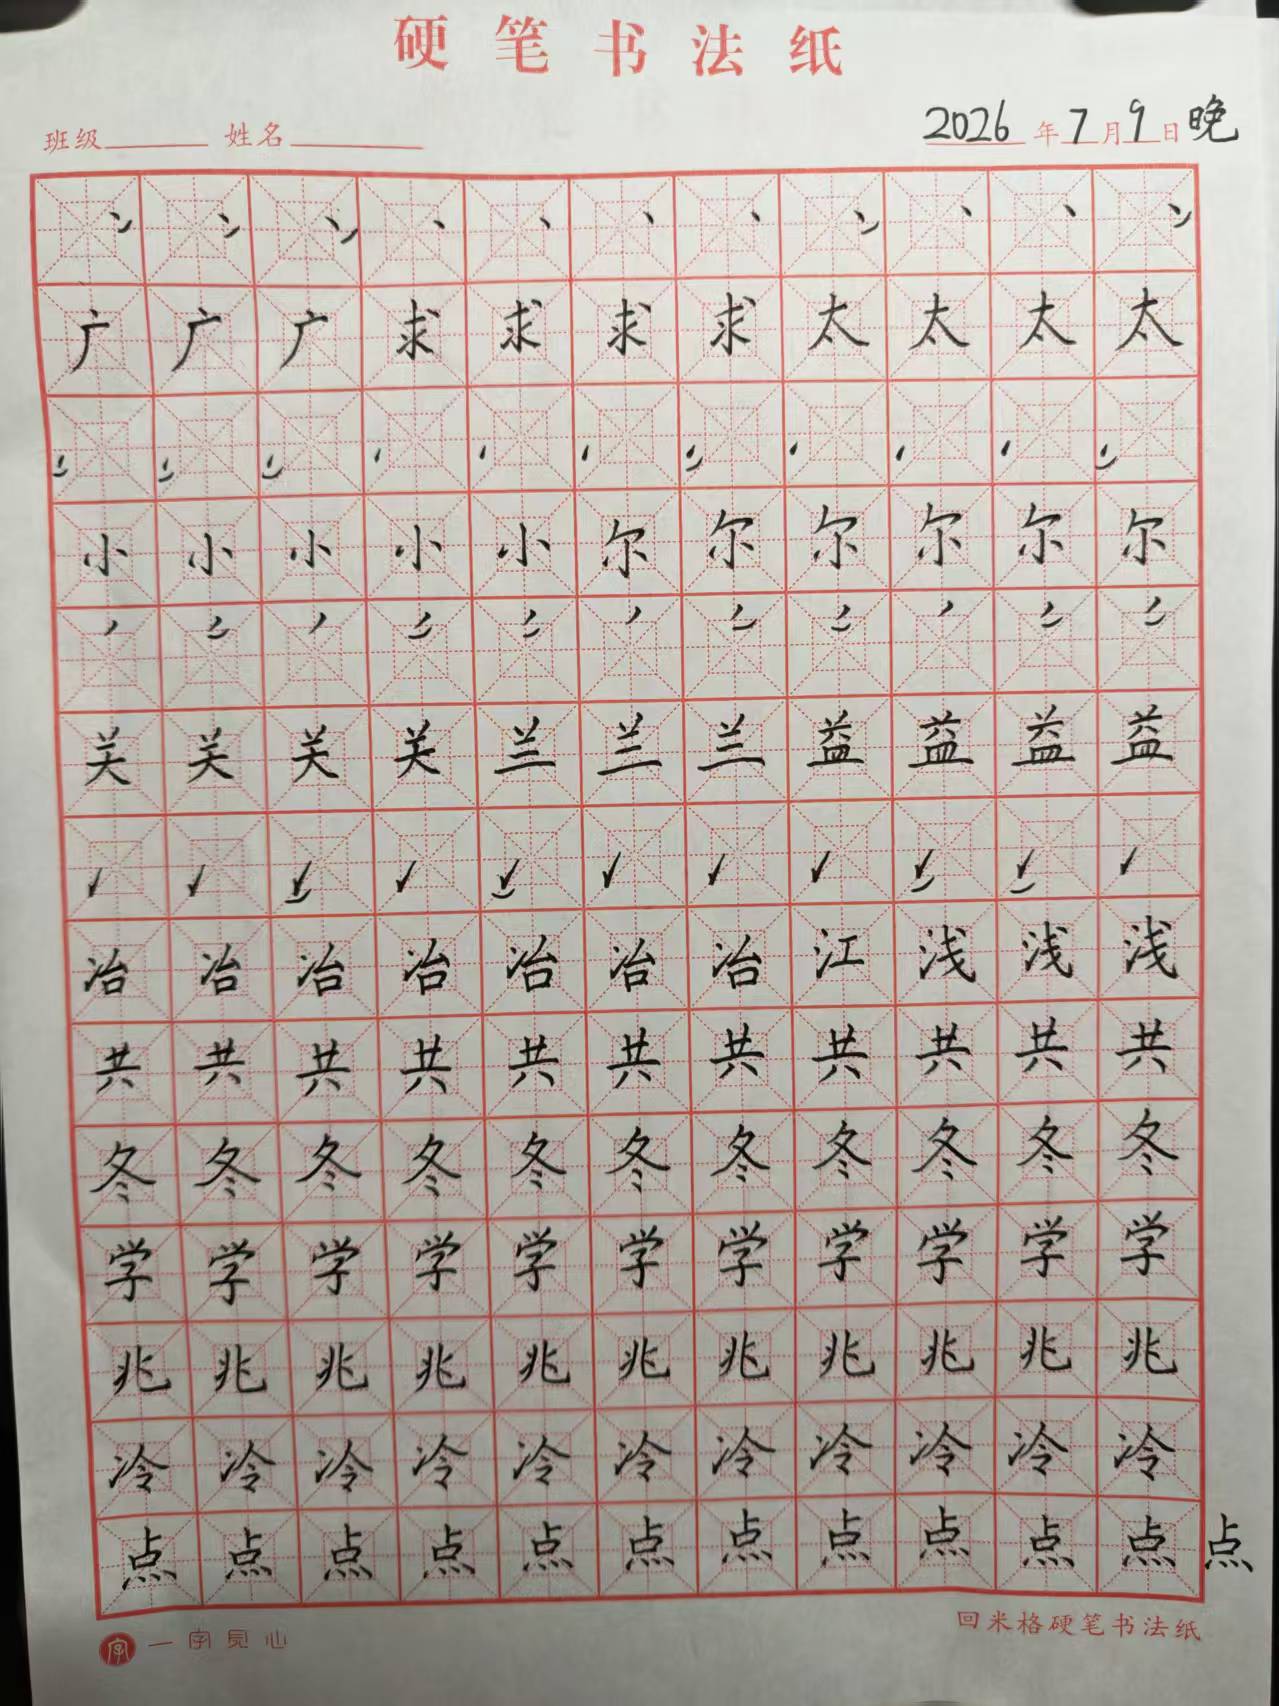 硬笔书法纸
班级 姓名 2026年7月9日晚
丶丶丶丶丶丶丶丶丶丶丶
广广广求求求求太太太太
小小小小小尔尔尔尔尔尔
关关关关兰兰兰益益益益
冶冶冶冶冶冶冶江浅浅浅
共共共共共共共共共共共
冬冬冬冬冬冬冬冬冬冬冬
学学学学学学学学学学学
兆兆兆兆兆兆兆兆兆兆兆
冷冷冷冷冷冷冷冷冷冷冷
点点点点点点点点点点点点
字 一字见心 回米格硬笔书法纸